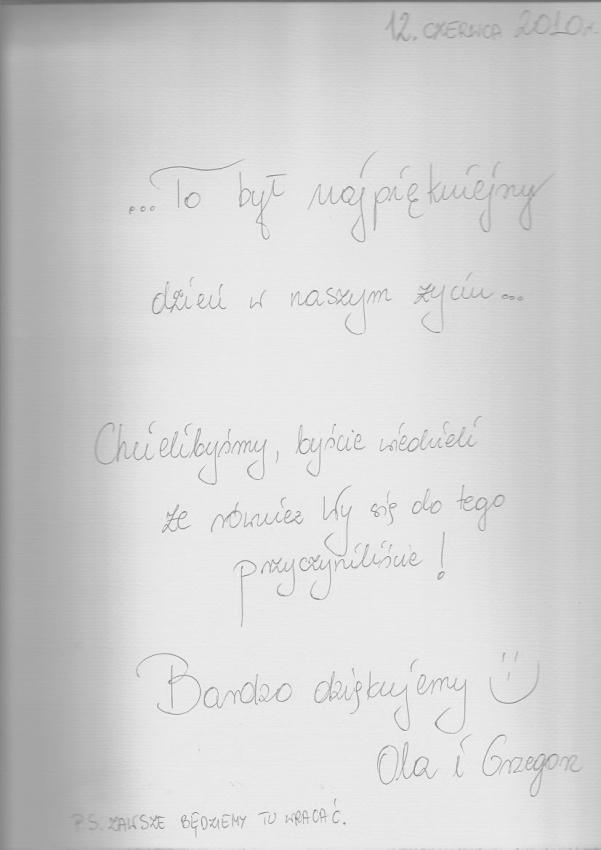 12. CZERWCA 2010r.
...To był najpiękniejny
dzień w naszym życiu...
Chcielibyśmy, byście wiedzieli
że również Wy się do tego
przyczyniliście!
Bardzo dziękujemy
Ola i Grzegorz
P.S. ZAWSZE BĘDZIEMY TU WRACAĆ.